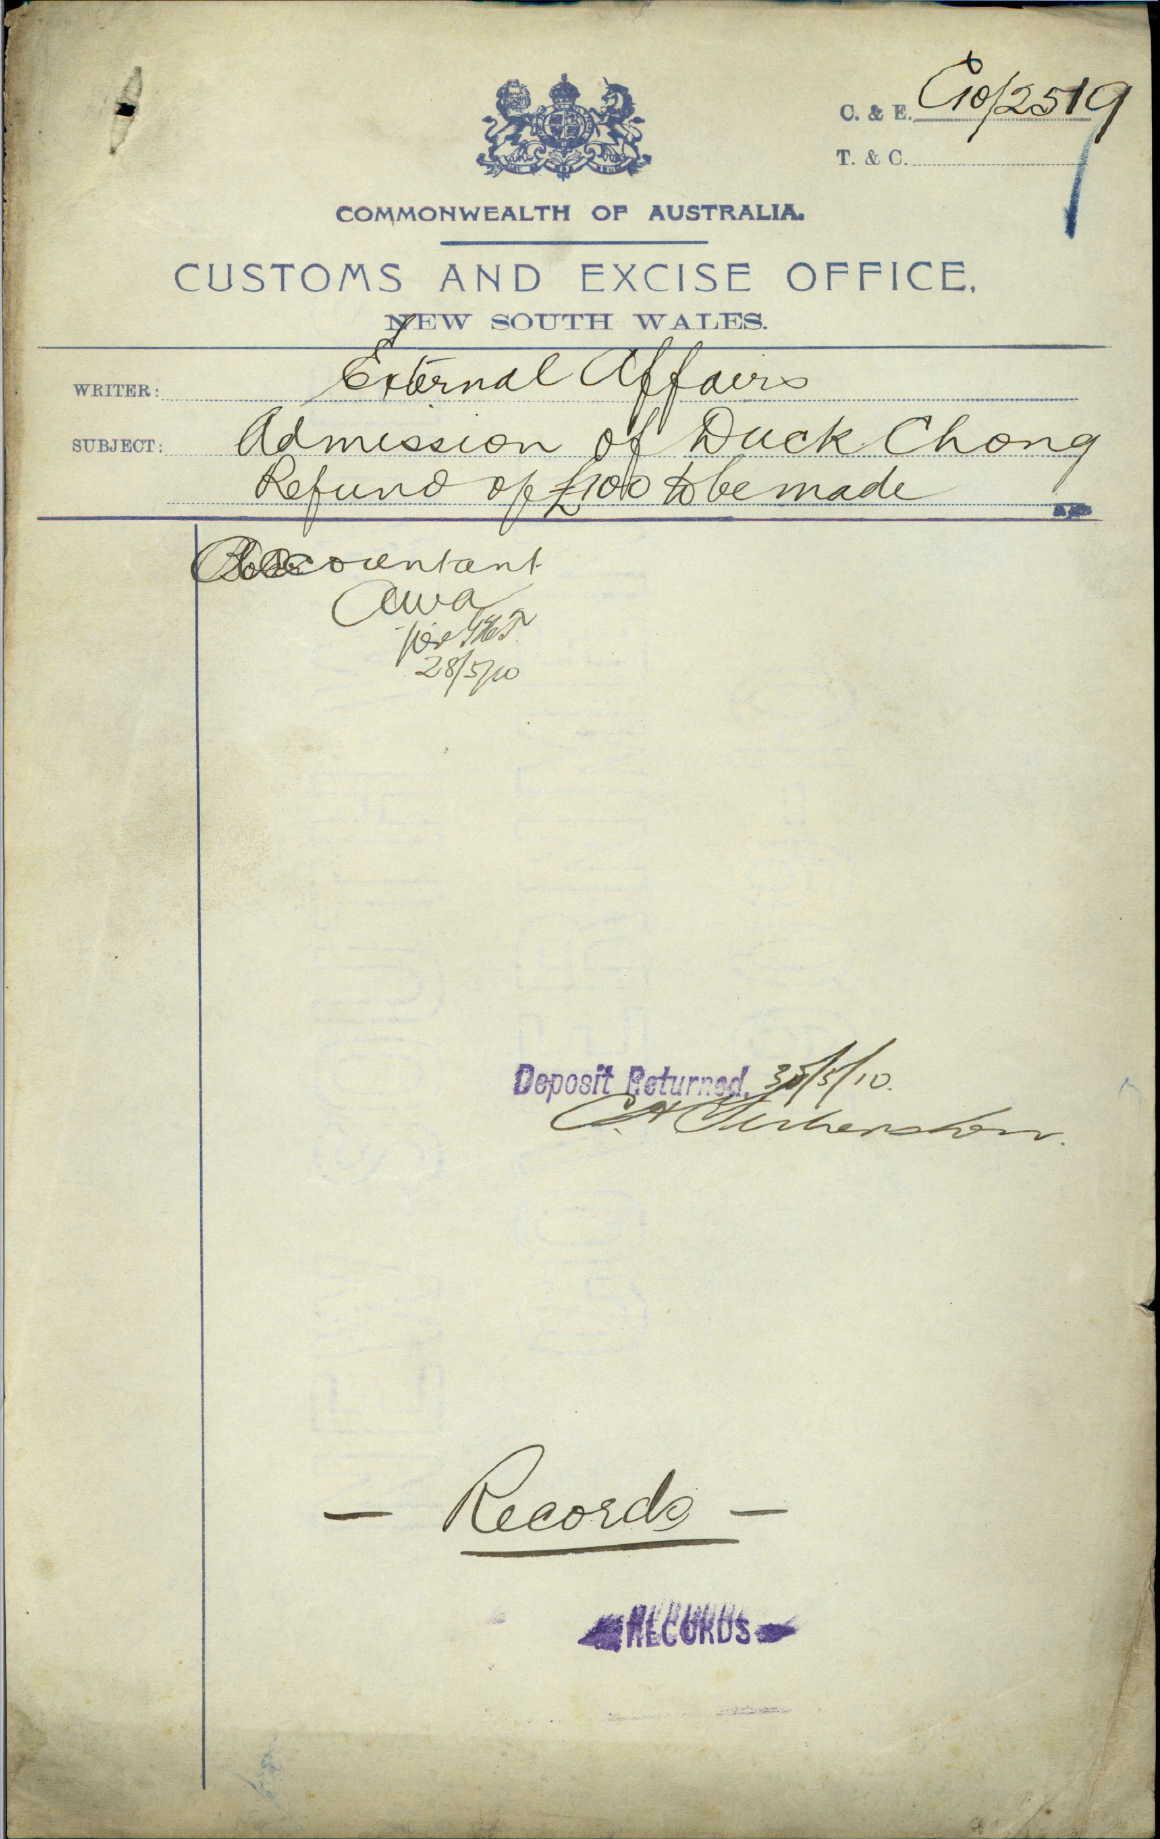 C. & E. C10/2519
T. & C.
COMMONWEALTH OF AUSTRALIA.
CUSTOMS AND EXCISE OFFICE,
NEW SOUTH WALES.
WRITER: External Affairs
SUBJECT: Admission of Duck Chong
Refund of £100 to be made
Accountant
28/5/10
Deposit Returned. 30/5/10.
— Records —
RECORDS